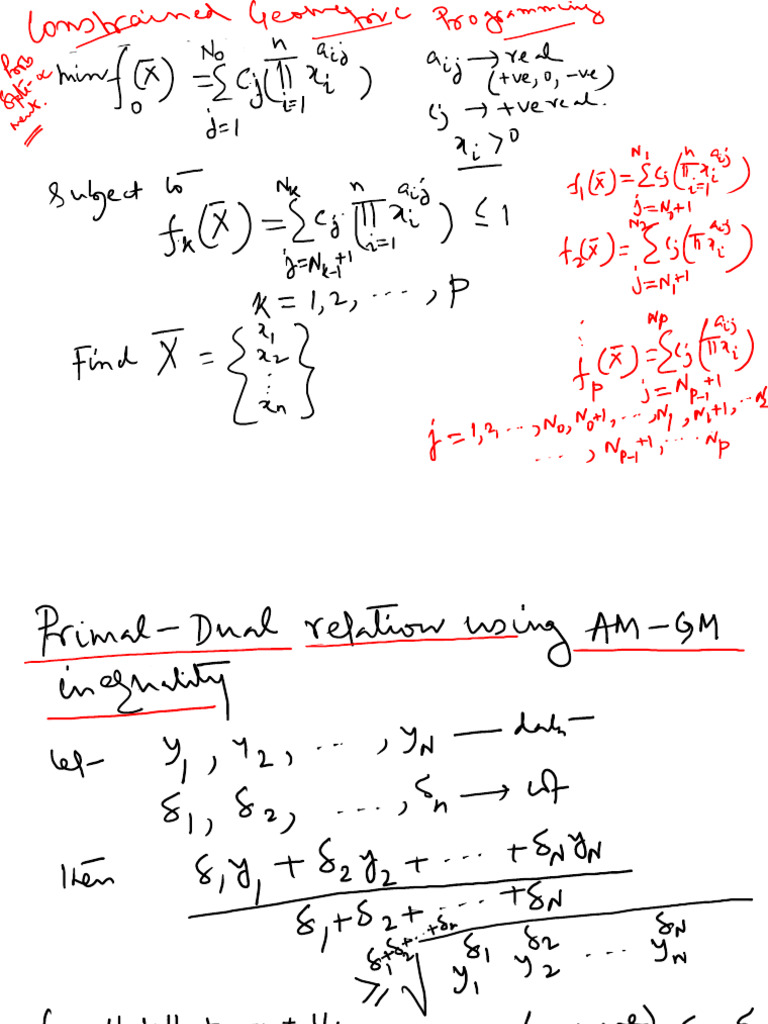 Constrained Geometric Programming
Prob State-ment.
min f₀(X̄) = Σ_{j=1}^{N₀} c_j (Π_{i=1}^{n} x_i^{a_ij})
a_ij → real
(+ve, 0, -ve)
c_j → +ve real.
x_i > 0
Subject to
f_k(X̄) = Σ_{j=N_{k-1}+1}^{N_k} c_j (Π_{i=1}^{n} x_i^{a_ij}) ≤ 1
k = 1, 2, ..., p
Find X̄ = { x₁ x₂ ⋮ x_n }
f₁(X̄) = Σ_{j=N₀+1}^{N₁} c_j (Π_{i=1}^{n} x_i^{a_ij})
f₂(X̄) = Σ_{j=N₁+1}^{N₂} c_j (Π x_i^{a_ij})
⋮
f_p(X̄) = Σ_{j=N_{p-1}+1}^{N_p} c_j (Π x_i^{a_ij})
j = 1, 2, ..., N₀, N₀+1, ..., N₁, N₁+1, ... N₂
..., N_{p-1}+1, ... N_p
Primal-Dual relation using AM-GM
inequality
let y₁, y₂, ..., y_N — data
δ₁, δ₂, ..., δ_n → wt
then (δ₁y₁ + δ₂y₂ + ... + δ_N y_N) / (δ₁ + δ₂ + ... + δ_N)
≥ ^{δ₁+δ₂+...+δ_n}√(y₁^{δ₁} y₂^{δ₂} ... y_N^{δ_N})